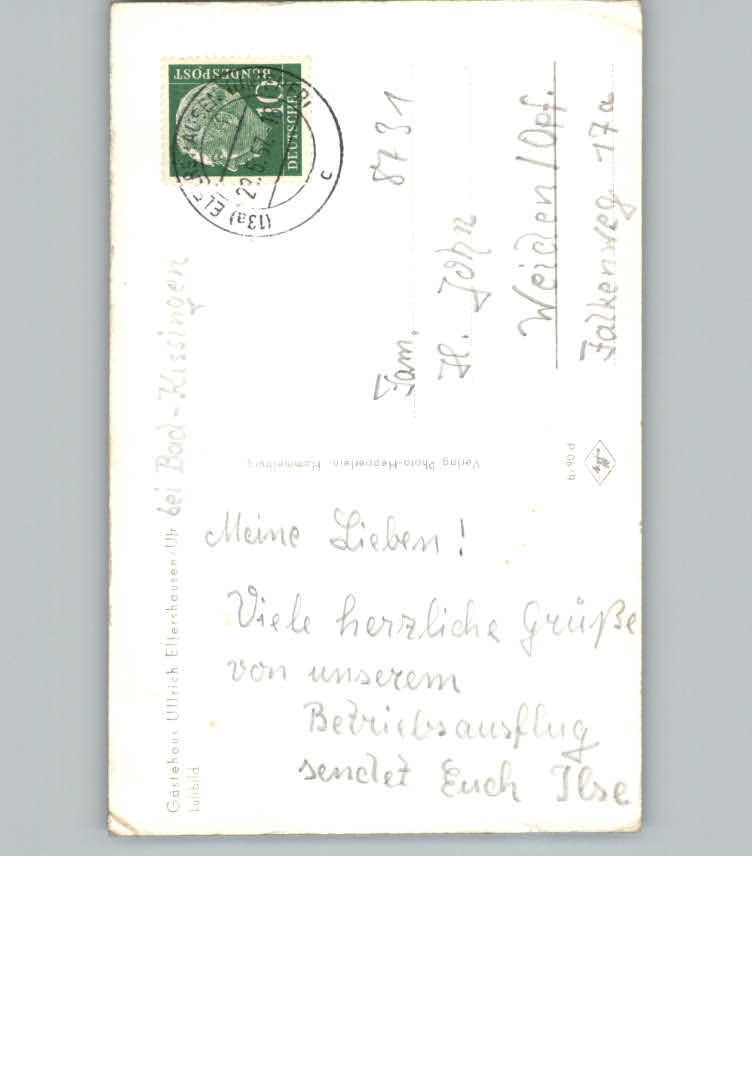 Gästehaus Ullrich Elfershausen/Ufr bei Bad-Kissingen
Luftbild
Meine Lieben!
Viele herzliche Grüße
von unserem
Betriebsausflug
sendet Euch Ilse
Verlag Photo-Hepperlein, Hammelburg
DEUTSCHE
BUNDESPOST
10
(13a) ELFERSHAUSEN
c
8731
Fam.
H. John
Weiden/Opf.
Falkenweg 17a